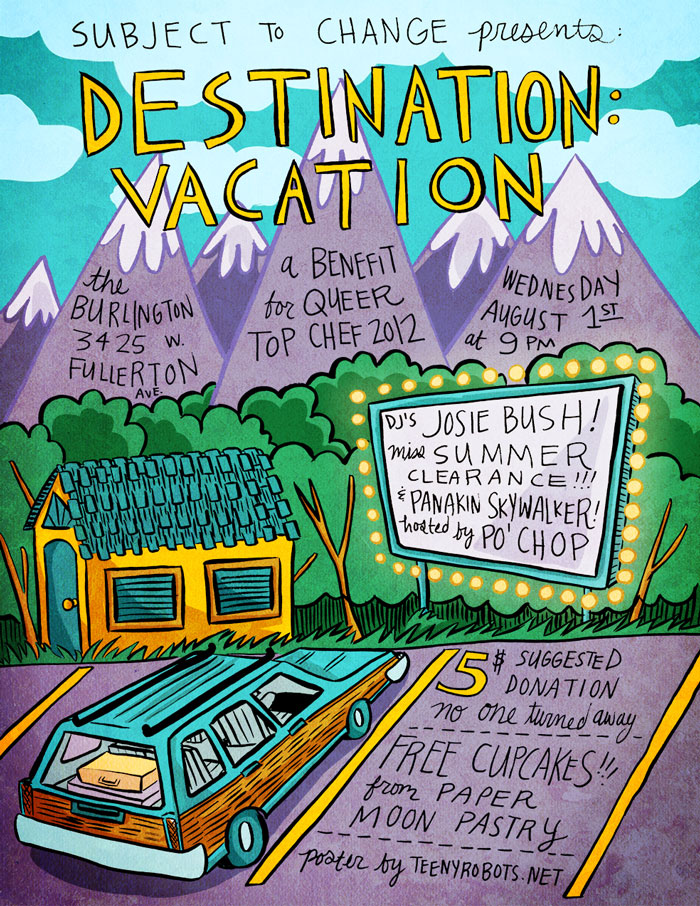 SUBJECT TO CHANGE presents:
DESTINATION:
VACATION
the
BURLINGTON
3425 W.
FULLERTON
AVE.
a BENEFIT
for QUEER
TOP CHEF 2012
WEDNESDAY
AUGUST 1ST
at 9 PM
DJ'S JOSIE BUSH!
miss SUMMER
CLEARANCE!!!
& PANAKIN SKYWALKER!
hosted by PO' CHOP
5$ SUGGESTED
DONATION
no one turned away
FREE CUPCAKES!!!
from PAPER
MOON PASTRY
poster by TEENYROBOTS.NET